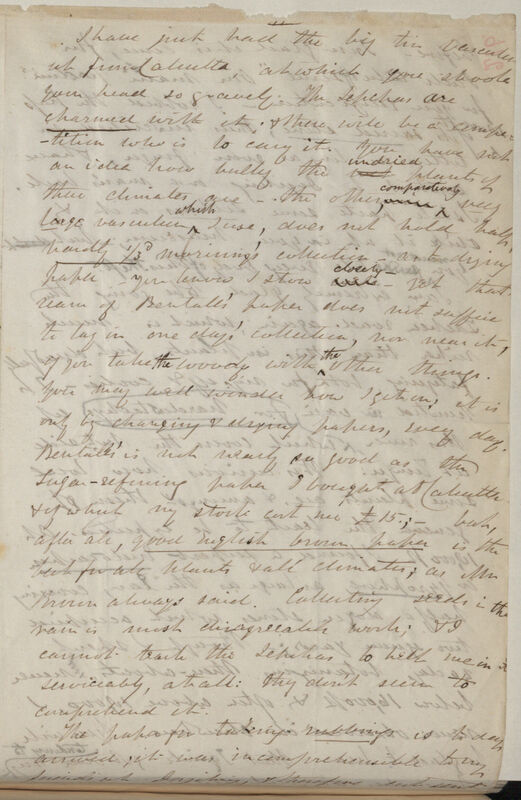 I have just had the big tin vasculum
up from Calcutta at which you shook
your head so gravely. The Lepchas are
charmed with it & there will be a compe
-tition who is to carry it. You have not
an idea how bulky the undried plants of
these climates are – the other comparatively very
large vasculum which I use, does not hold half,
hardly 1/3d mornings collection – as to drying
paper – you know I stow closely – yet that
ream of Bentalls' paper does not suffice
to lay in one days collection, nor near it,
if you take the woody with the other things.
You may well wonder how I get on, it is
only by changing & drying papers, every day.
Bentall's is not nearly so good as the
Sugar-refining paper I bought at Calcutta
& of which my stock cost me £15; – but,
after all, good english brown paper is the
best for all plants & all climates; as Mr
Brown always said. Collecting seeds in the
rain is most disagreeable work; & I
cannot teach the Lepchas to help me in it
serviceably, at all: they dont seem to
comprehend it.
The paper for taking rubbings is to day
arrived, it was incomprehensible to my